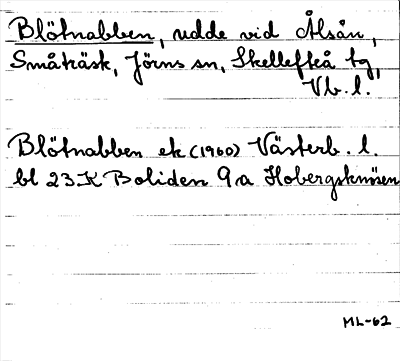 Blötnabben, udde vid Ålsån,
Småträsk, Jörns sn, Skellefteå tg,
Vb. l.
Blötnabben ek (1960) Västerb. l.
bl 23 K Boliden 9a Hobergsknösen
ML-62